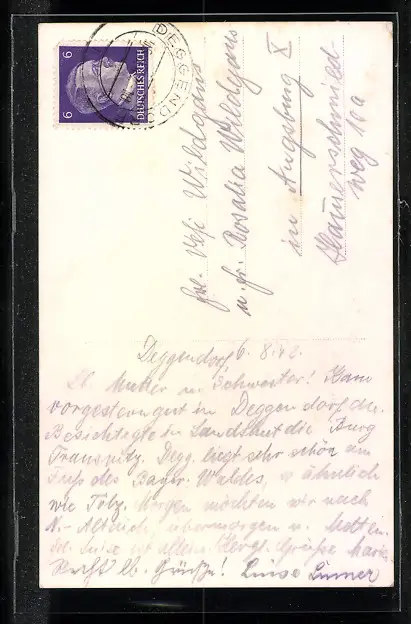 6 DEUTSCHES REICH 6
DEGGENDORF
Frl. Vefi Wildgans
u. Fr. Rosalia Wildgans
in Augsburg X
Hammerschmied
weg 10a
Deggendorf 6. 8. 42.
Lb. Mutter u. Schwester! Kam
vorgestern gut in Deggendorf an.
Besichtigte in Landshut die Burg
Trausnitz. Degg. liegt sehr schön am
Fuß des Bayr. Waldes, ähnlich
wie Tölz. Morgen möchten wir nach
N.-Altaich, übermorgen n. Metten.
Luise ist allein. Herzl. Grüße Maria
Recht lb. Grüße! Luise